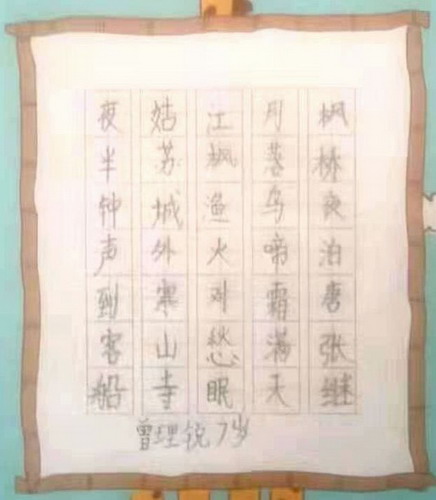 枫桥夜泊唐张继
月落乌啼霜满天
江枫渔火对愁眠
姑苏城外寒山寺
夜半钟声到客船
曾理锐7岁